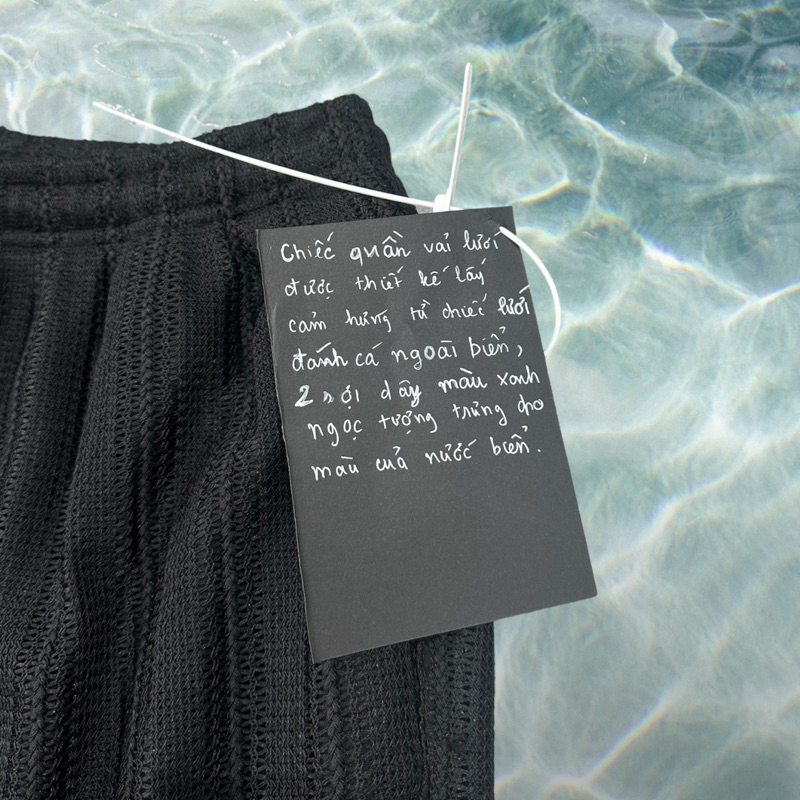 Chiếc quần vải lưới
được thiết kế lấy
cảm hứng từ chiếc lưới
đánh cá ngoài biển,
2 sợi dây màu xanh
ngọc tượng trưng cho
màu của nước biển.